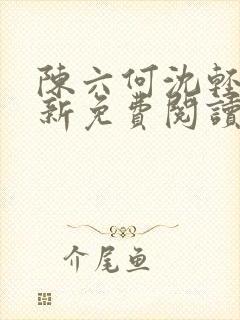 陳六何沈輕
新免費閱讀
介尾鱼